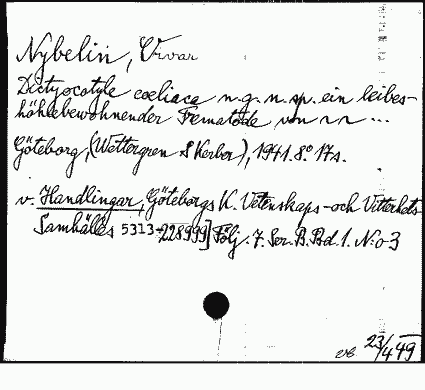 Nybelin, Orvar
Dictyocotyle coeliaca n.g.n.sp. ein leibes-
höhlebewohnender Trematode von ...
Göteborg, (Wettergren & Kerber), 1941. 8:o 17 s.
v. Handlingar, Göteborgs K. Vetenskaps- och Vitterhets
Samhälles 5313-228999] Följ. 7. Ser. B. Bd. 1. N:o 3
23/4 49